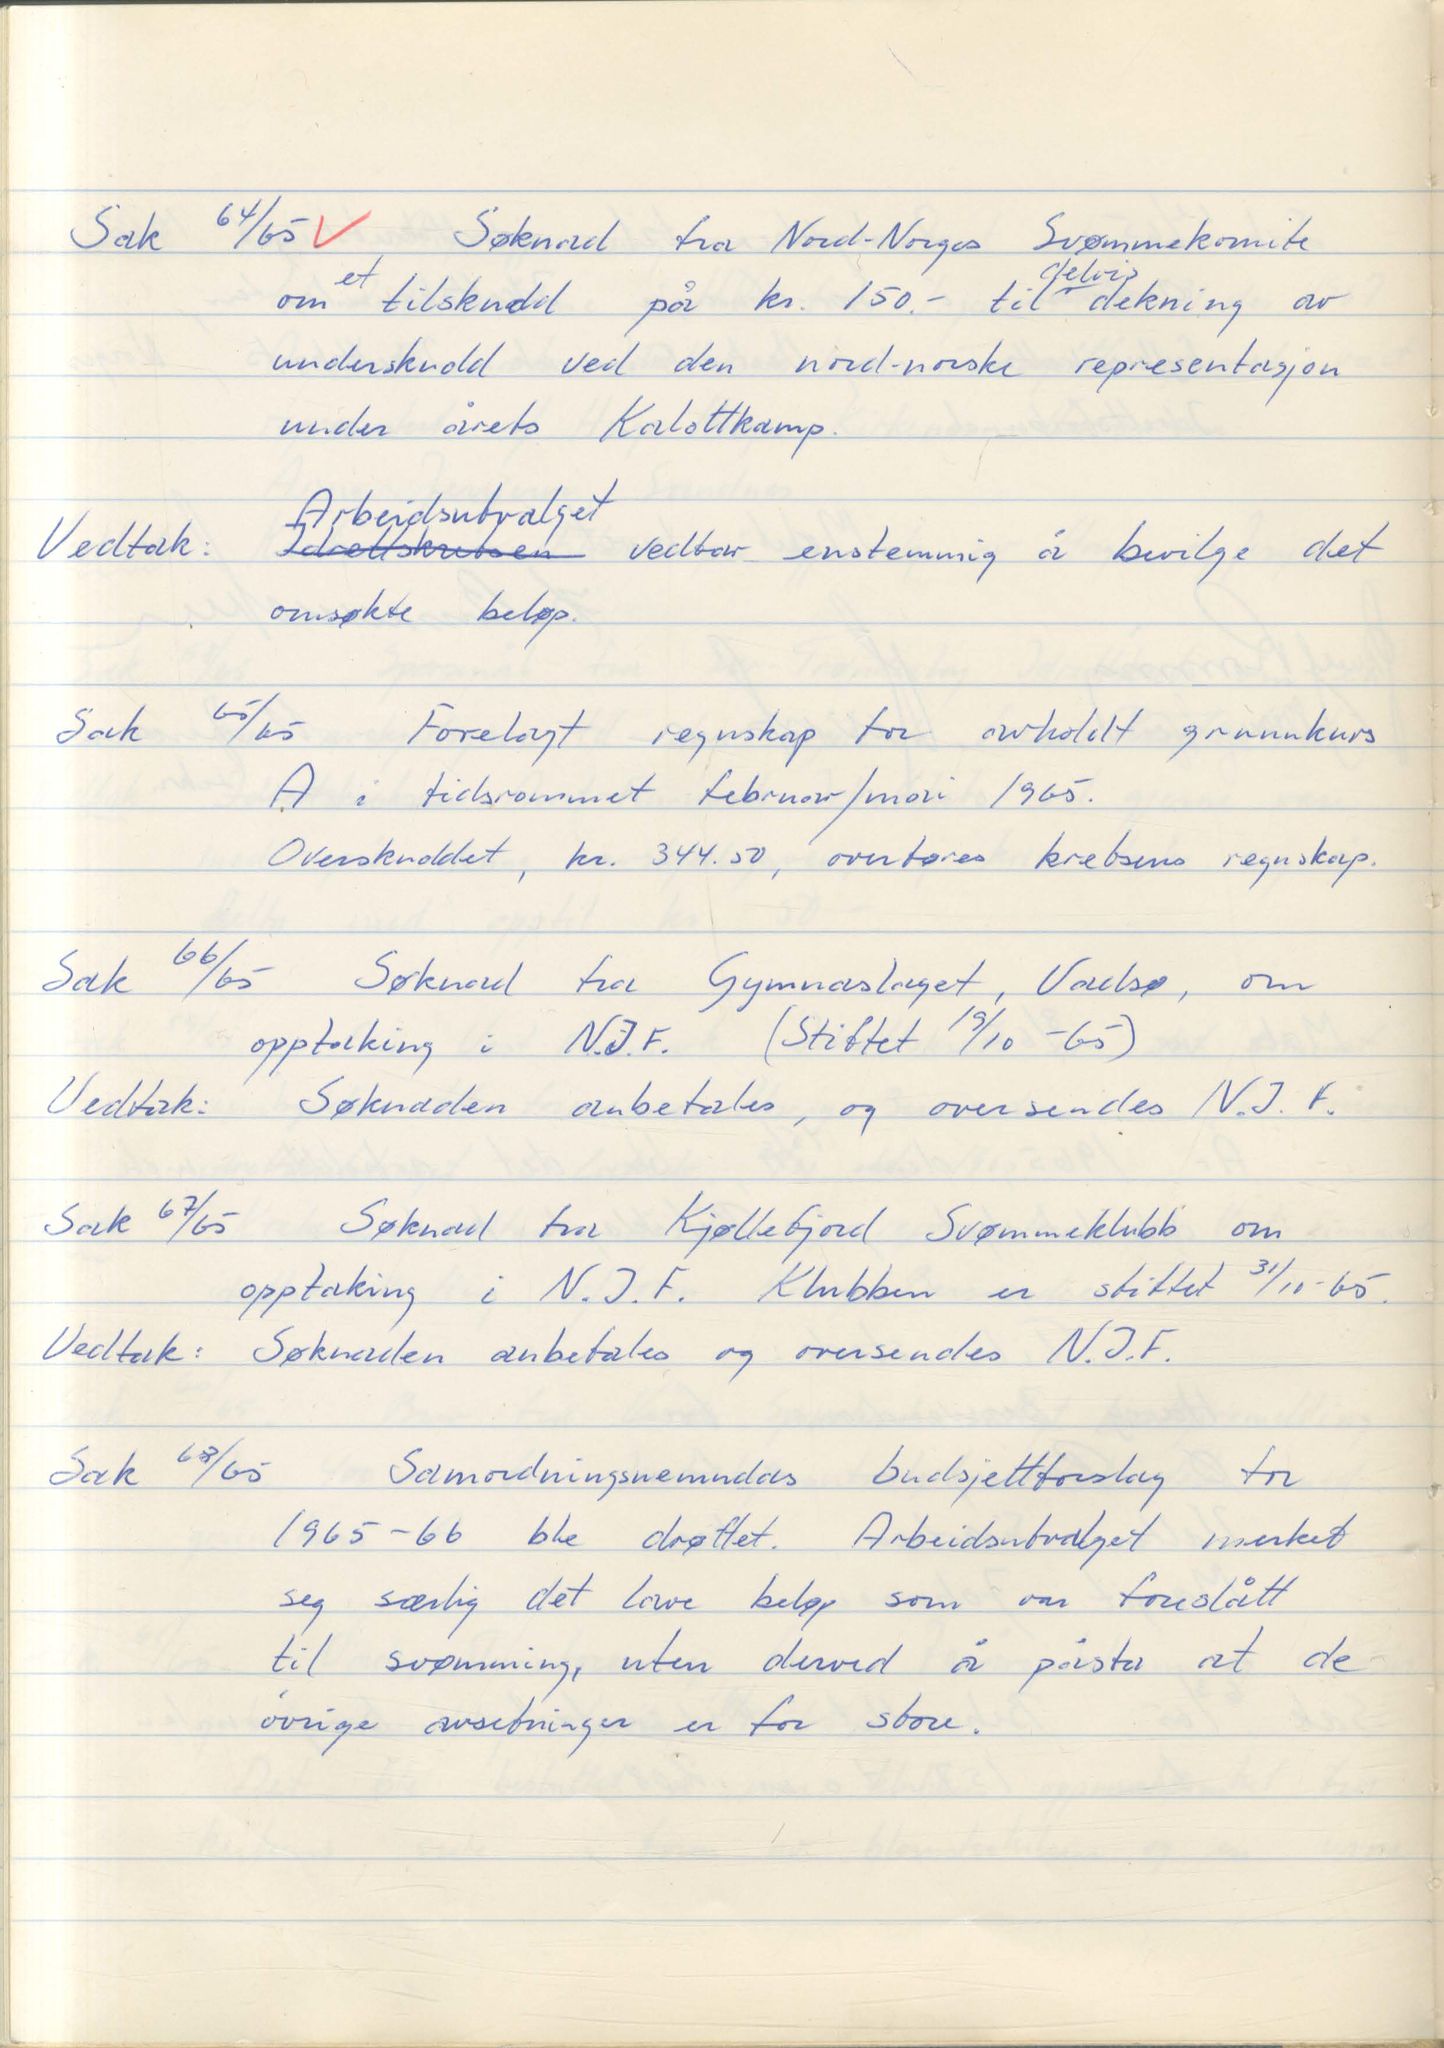 Sak 64/65 V Søknad fra Nord-Norges Svømmekomite
om et tilskudd på kr. 150.- til delvis dekning av
underskudd ved den nord-norske representasjon
under årets Kalottkamp.
Arbeidsutvalget
Vedtak: Idrettskretsen vedtar enstemmig å bevilge det
omsøkte beløp.
Sak 65/65 Forelagt regnskap for avholdt grunnkurs
A i tidsrommet februar/mai 1965.
Overskuddet, kr. 344.50, overføres kretsens regnskap.
Sak 66/65 Søknad fra Gymnaslaget, Vadsø, om
opptaking i N.I.F. (Stiftet 19/10 -65)
Vedtak: Søknaden anbefales, og oversendes N.I.F.
Sak 67/65 Søknad fra Kjøllefjord Svømmeklubb om
opptaking i N.I.F. Klubben er stiftet 31/10-65.
Vedtak: Søknaden anbefales og oversendes N.I.F.
Sak 68/65 Samordningsnemndas budsjettforslag for
1965-66 ble drøftet. Arbeidsutvalget merket
seg særlig det lave beløp som var foreslått
til svømming, uten derved å påstå at de
øvrige avsetninger er for store.